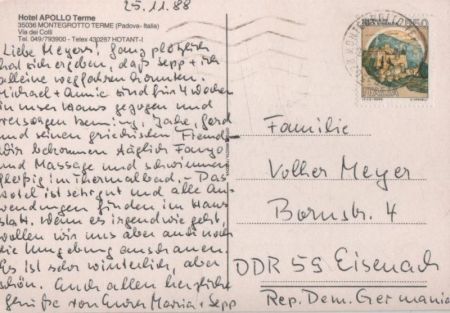 25.11.88
Hotel APOLLO Terme
35036 MONTEGROTTO TERME (Padova - Italia)
Via dei Colli
Tel. 049/793900 - Telex 430287 HOTANT-I
Liebe Meyers! Ganz plötzlich
hat sich ergeben, daß Sepp + ich
alleine wegfahren konnten.
Michael + Annie sind für 4 Wochen
in unser Haus gezogen und
versorgen Henning, Gerd
und seinen griechischen Freund.
Wir bekommen täglich Fango
und Massage und schwimmen
fleißig im Thermalbad. - Das
Hotel ist sehr gut und alle An-
wendungen finden im Haus
statt. Wenn es irgendwie geht,
wollen wir uns aber auch noch
die Umgebung anschauen.
Es ist sehr winterlich, aber
schön. Euch allen herzliche
Grüße von Eurer Maria + Sepp
Familie
Volker Meyer
Bornstr. 4
DDR 59 Eisenach
Rep. Dem. Germania